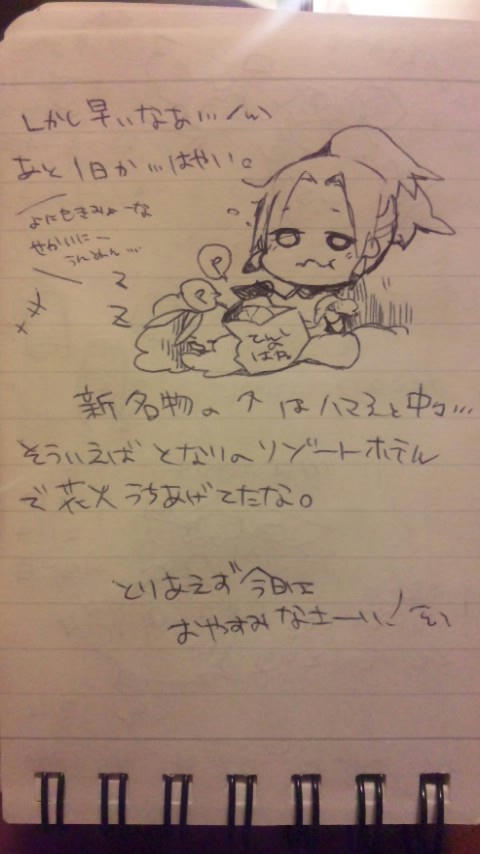 しかし早いなぁ…
あと1日か…はやい。
よにもきみょーな
せかいにー
うんめん…
Z
Z
P
P
新名物の↑はハマると中々…
そういえばとなりのリゾートホテル
で花火うちあげてたな。
とりあえず今日は
おやすみなさーい!